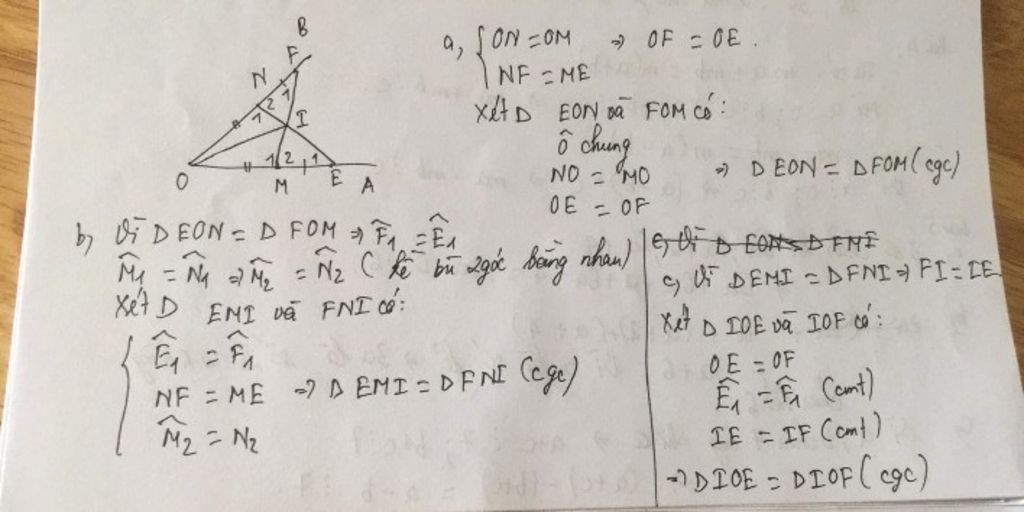 B
F
N
2 1
1
I
1 2 1
O M E A
a, { ON = OM ⇒ OF = OE .
NF = ME
Xét Δ EON và FOM có:
Ô chung
NO = MO ⇒ Δ EON = Δ FOM (cgc)
OE = OF
b, Vì Δ EON = Δ FOM ⇒ F̂₁ = Ê₁
M̂₁ = N̂₁ ⇒ M̂₂ = N̂₂ ( kề bù 2 góc bằng nhau)
Xét Δ EMI và FNI có:
{ Ê₁ = F̂₁
NF = ME ⇒ Δ EMI = Δ FNI (cgc)
M̂₂ = N₂
c, Vì Δ EON = Δ FMI
c, Vì Δ EMI = Δ FNI ⇒ FI = IE
Xét Δ IOE và IOF có:
OE = OF
Ê₁ = F̂₁ (cmt)
IE = IF (cmt)
⇒ Δ IOE = Δ IOF ( cgc)